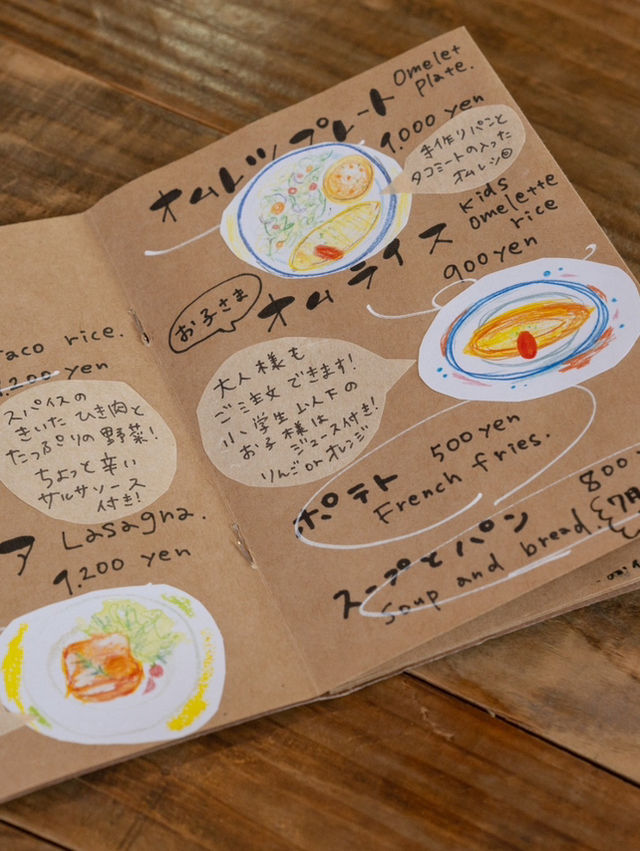 Taco rice.
1.200 yen
スパイスの
きいた ひき肉と
たっぷりの野菜!
ちょっと辛い
サルサソース
付き!
ア Lasagna.
1.200 yen
オムレツプレート
Omelet
plate.
1.000 yen
手作りパンと
タコミートの入った
オムレツ
お子さま
オムライス
Kids
Omelette
rice
900 yen
大人様も
ご注文できます!
小学生以下の
お子様は
ジュース付き!
りんごorオレンジ
ポテト 500 yen
French fries.
スープとパン 800
Soup and bread.